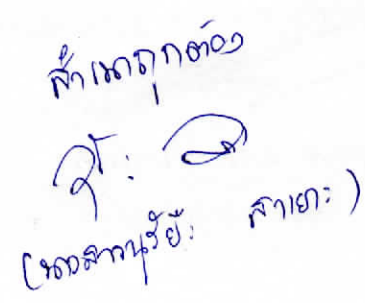 สำเนาถูกต้อง
(นางสาวนุรัยะ สาเยาะ)